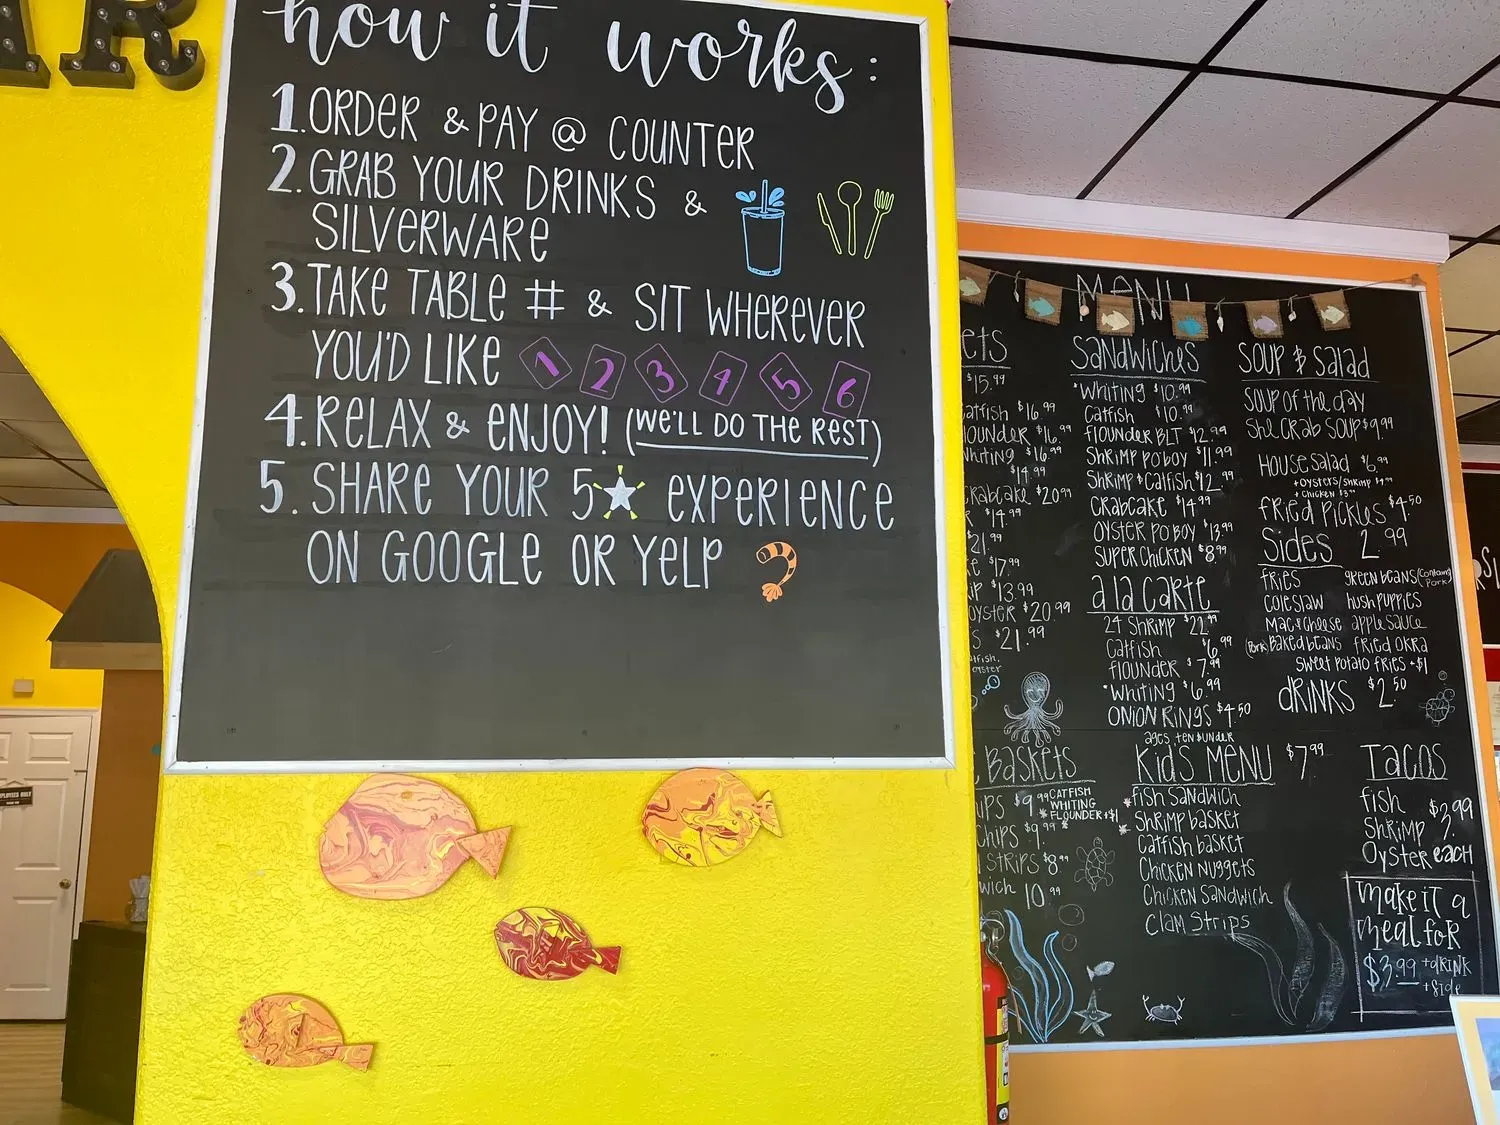 AR
how it works:
1. ORDER & PAY @ COUNTER
2. GRAB YOUR DRINKS &
SILVERWARE
3. TAKE TABLE # & SIT WHEREVER
YOU'D LIKE 1 2 3 4 5 6
4. RELAX & ENJOY! (WE'LL DO THE REST)
5. SHARE YOUR 5 EXPERIENCE
ON GOOGLE OR YELP
MENU
ets
$15.99
atfish $16.99
lounder $16.99
whiting $16.99
$14.99
crabcake $20.99
$14.99
$21.99
$17.99
$13.99
oyster $20.99
s $21.99
atfish,
oyster
Sandwiches
*Whiting $10.99
Catfish $10.99
flounder BLT $12.99
Shrimp po boy $11.99
Shrimp & Catfish $12.99
Crabcake $14.99
Oyster po boy $13.99
Super Chicken $8.99
a la carte
24 Shrimp $22.99
Catfish $6.99
flounder $7.99
*Whiting $6.99
Onion Rings $4.50
Soup & Salad
Soup of the day
She Crab Soup $9.99
House Salad $6.99
+ Oysters/Shrimp $7.99
+ Chicken $3.99
fried pickles $4.50
Sides 2.99
fries green beans (contains pork)
coleslaw hushpuppies
mac & cheese applesauce
(pork) baked beans fried okra
sweet potato fries +$1
drinks $2.50
Baskets
ips $9.99 CATFISH
WHITING
FLOUNDER +$1
chips $9.99
strips $8.99
wich 10.99
ages ten & under
Kid's Menu $7.99
fish sandwich
Shrimp basket
Catfish basket
Chicken nuggets
Chicken sandwich
Clam strips
Tacos
fish
Shrimp $3.99
Oyster each
make it a
meal for
$3.99 + drink
+ side
EMPLOYEES ONLY